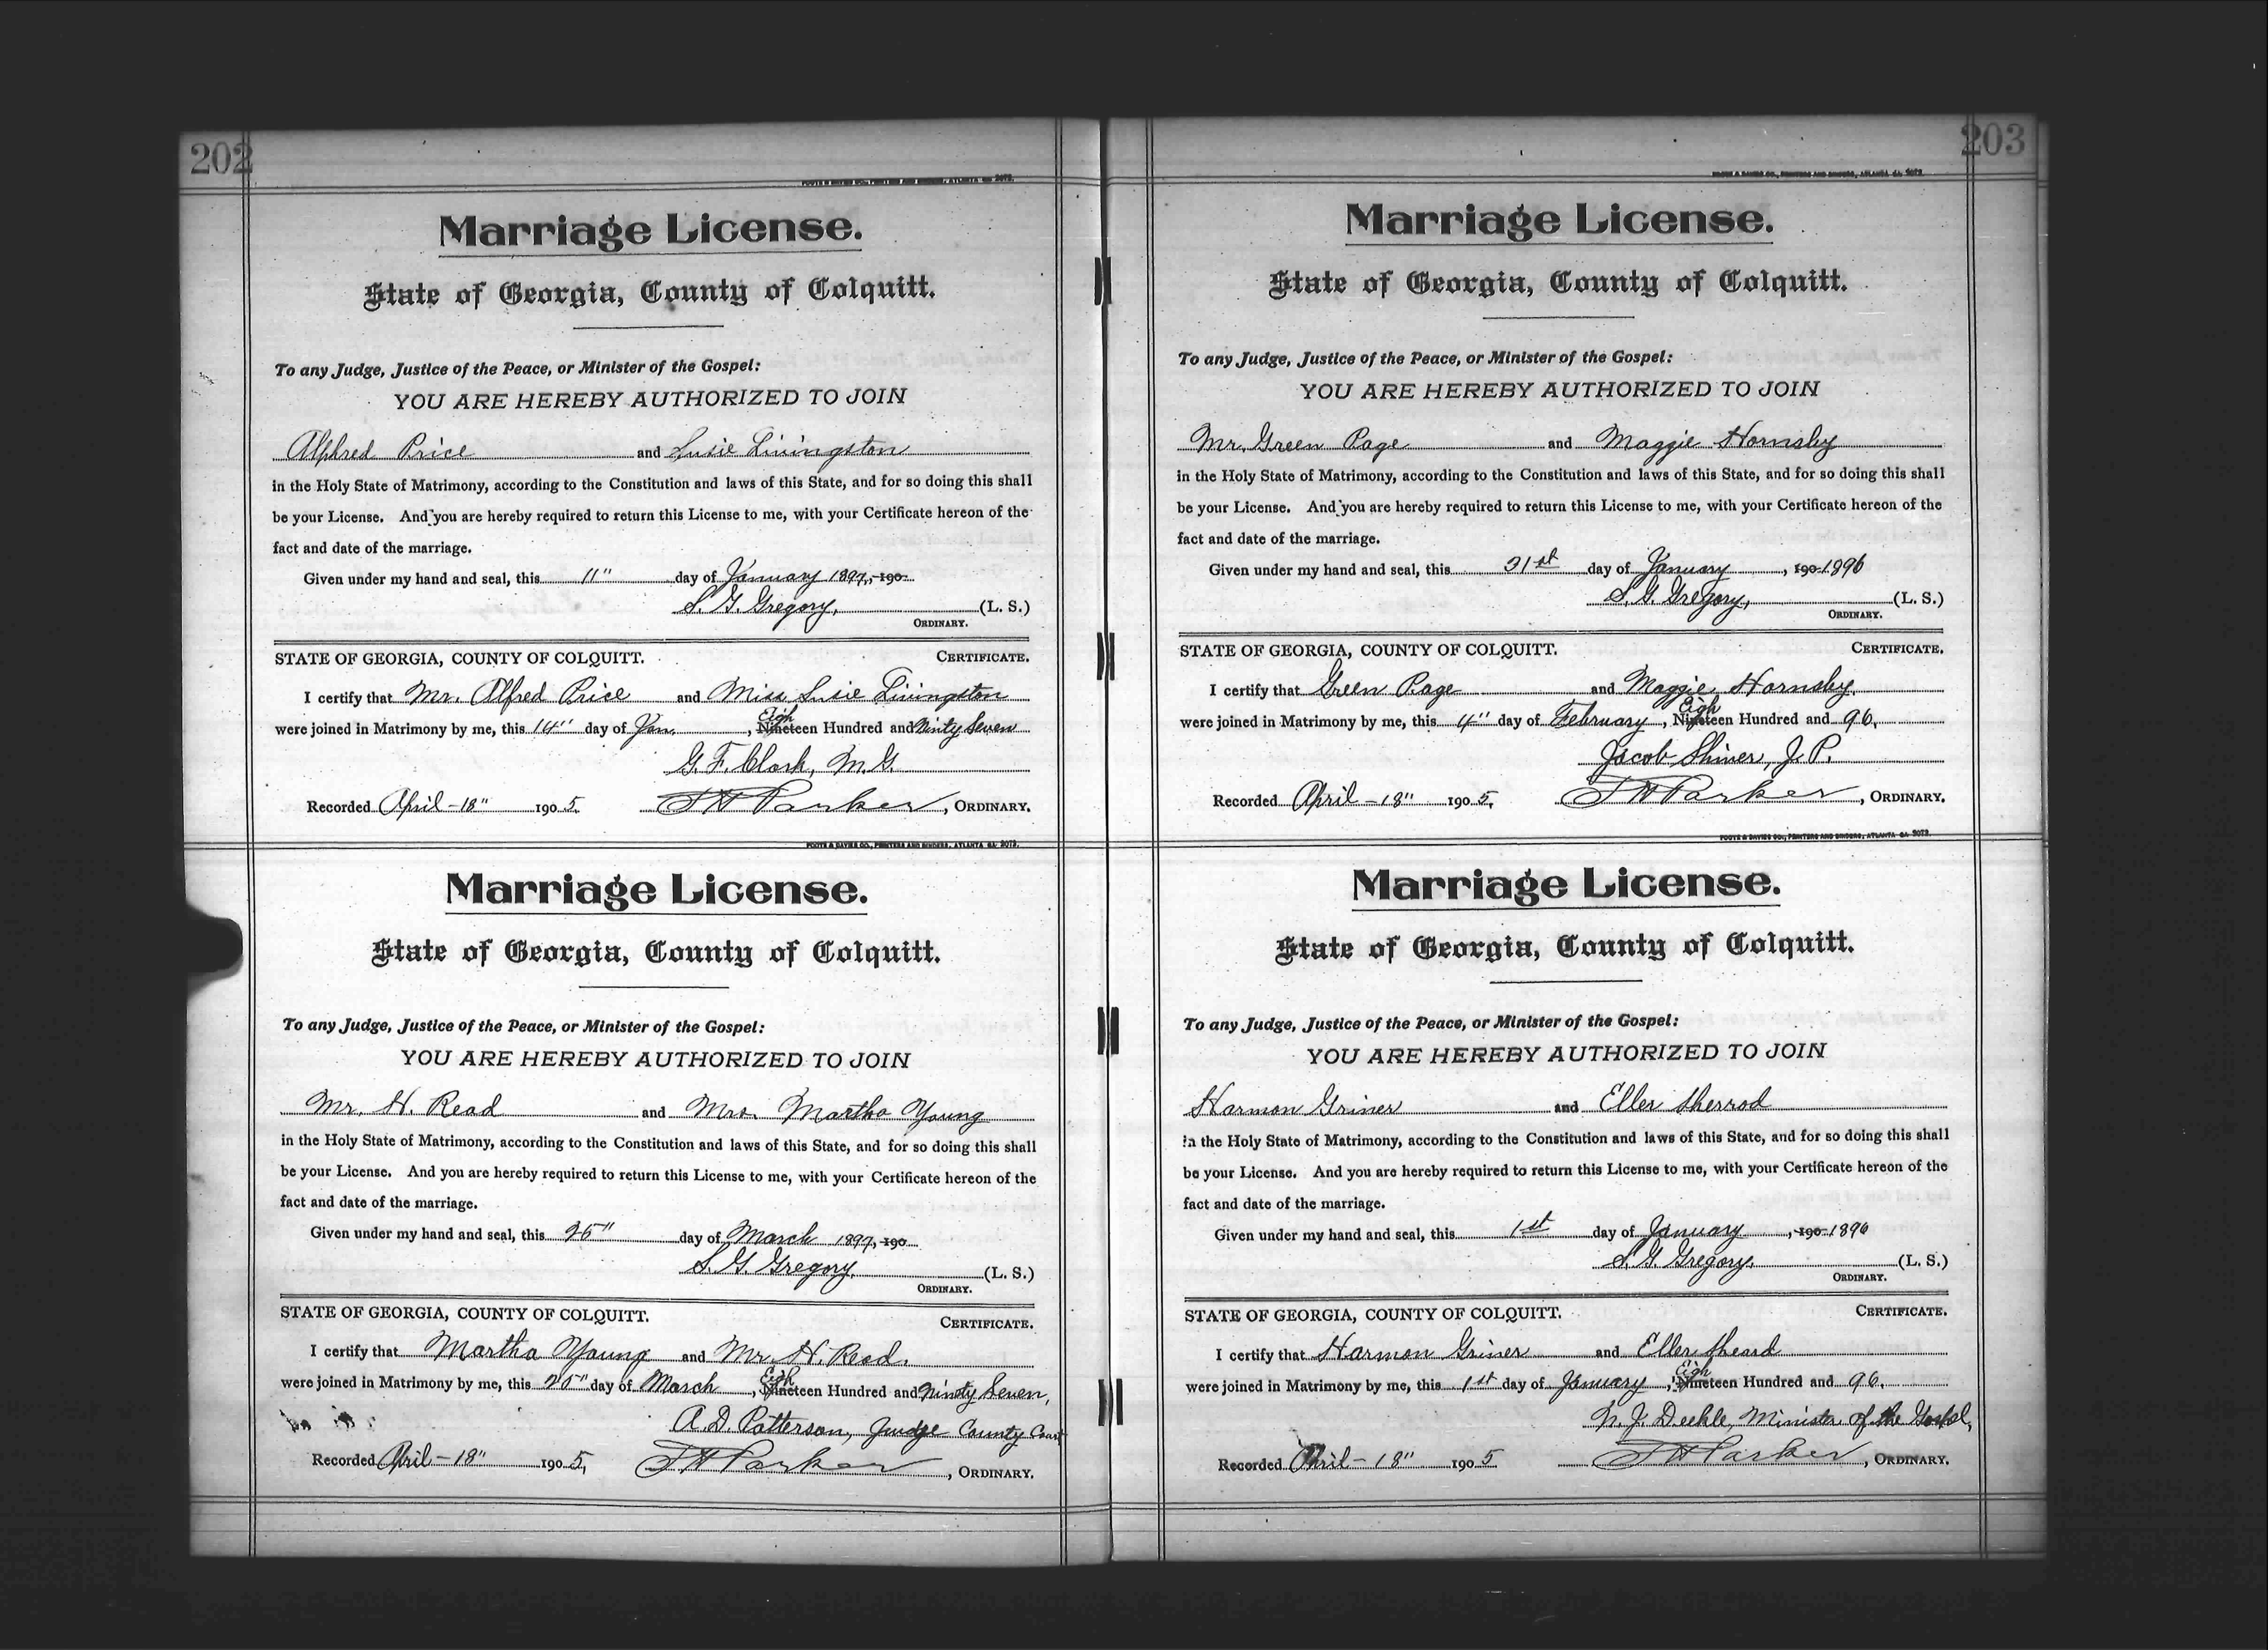 202
FOOTE & DAVIES CO., PRINTERS AND BINDERS, ATLANTA GA. 3073.
Marriage License.
State of Georgia, County of Colquitt.
To any Judge, Justice of the Peace, or Minister of the Gospel:
YOU ARE HEREBY AUTHORIZED TO JOIN
Alphred Price and Susie Livingston
in the Holy State of Matrimony, according to the Constitution and laws of this State, and for so doing this shall
be your License. And you are hereby required to return this License to me, with your Certificate hereon of the
fact and date of the marriage.
Given under my hand and seal, this 11" day of January 1897, 190
S. G. Gregory, (L. S.)
ORDINARY.
STATE OF GEORGIA, COUNTY OF COLQUITT. CERTIFICATE.
I certify that Mr. Alfred Price and Miss Susie Livingston
were joined in Matrimony by me, this 14" day of Jan. , Eigh Nineteen Hundred and Ninty Seven
G. F. Clark, M. G.
Recorded April - 18" 190 5, T W Parker, ORDINARY.
FOOTE & DAVIES CO., PRINTERS AND BINDERS, ATLANTA GA. 3073.
Marriage License.
State of Georgia, County of Colquitt.
To any Judge, Justice of the Peace, or Minister of the Gospel:
YOU ARE HEREBY AUTHORIZED TO JOIN
Mr. H. Read and Mrs. Martha Young
in the Holy State of Matrimony, according to the Constitution and laws of this State, and for so doing this shall
be your License. And you are hereby required to return this License to me, with your Certificate hereon of the
fact and date of the marriage.
Given under my hand and seal, this 25" day of March 1897, 190
S. G. Gregory, (L. S.)
ORDINARY.
STATE OF GEORGIA, COUNTY OF COLQUITT. CERTIFICATE.
I certify that Martha Young and Mr. H. Read.
were joined in Matrimony by me, this 25" day of March , Eigh Nineteen Hundred and Ninety Seven,
A. D. Patterson, Judge County Court
Recorded April - 18" 190 5, T W Parker, ORDINARY.
203
FOOTE & DAVIES CO., PRINTERS AND BINDERS, ATLANTA GA. 3073.
Marriage License.
State of Georgia, County of Colquitt.
To any Judge, Justice of the Peace, or Minister of the Gospel:
YOU ARE HEREBY AUTHORIZED TO JOIN
Mr. Green Page and Maggie Hornsby
in the Holy State of Matrimony, according to the Constitution and laws of this State, and for so doing this shall
be your License. And you are hereby required to return this License to me, with your Certificate hereon of the
fact and date of the marriage.
Given under my hand and seal, this 31st day of January , 190 1896
S. G. Gregory, (L. S.)
ORDINARY.
STATE OF GEORGIA, COUNTY OF COLQUITT. CERTIFICATE.
I certify that Green Page and Maggie Hornsby.
were joined in Matrimony by me, this 4" day of February , Eigh Nineteen Hundred and 96,
Jacob Shiner, J. P.
Recorded April - 18" 190 5, T W Parker, ORDINARY.
FOOTE & DAVIES CO., PRINTERS AND BINDERS, ATLANTA GA. 3073.
Marriage License.
State of Georgia, County of Colquitt.
To any Judge, Justice of the Peace, or Minister of the Gospel:
YOU ARE HEREBY AUTHORIZED TO JOIN
Harmon Griner and Eller Sherrod
in the Holy State of Matrimony, according to the Constitution and laws of this State, and for so doing this shall
be your License. And you are hereby required to return this License to me, with your Certificate hereon of the
fact and date of the marriage.
Given under my hand and seal, this 1st day of January , 190 1896
S. G. Gregory. (L. S.)
ORDINARY.
STATE OF GEORGIA, COUNTY OF COLQUITT. CERTIFICATE.
I certify that Harmon Griner and Eller Sheard
were joined in Matrimony by me, this 1st day of January , Eigh Nineteen Hundred and 96,
N. J. Deekle, Minister of the Gospel,
Recorded April - 18" 190 5 T W Parker, ORDINARY.